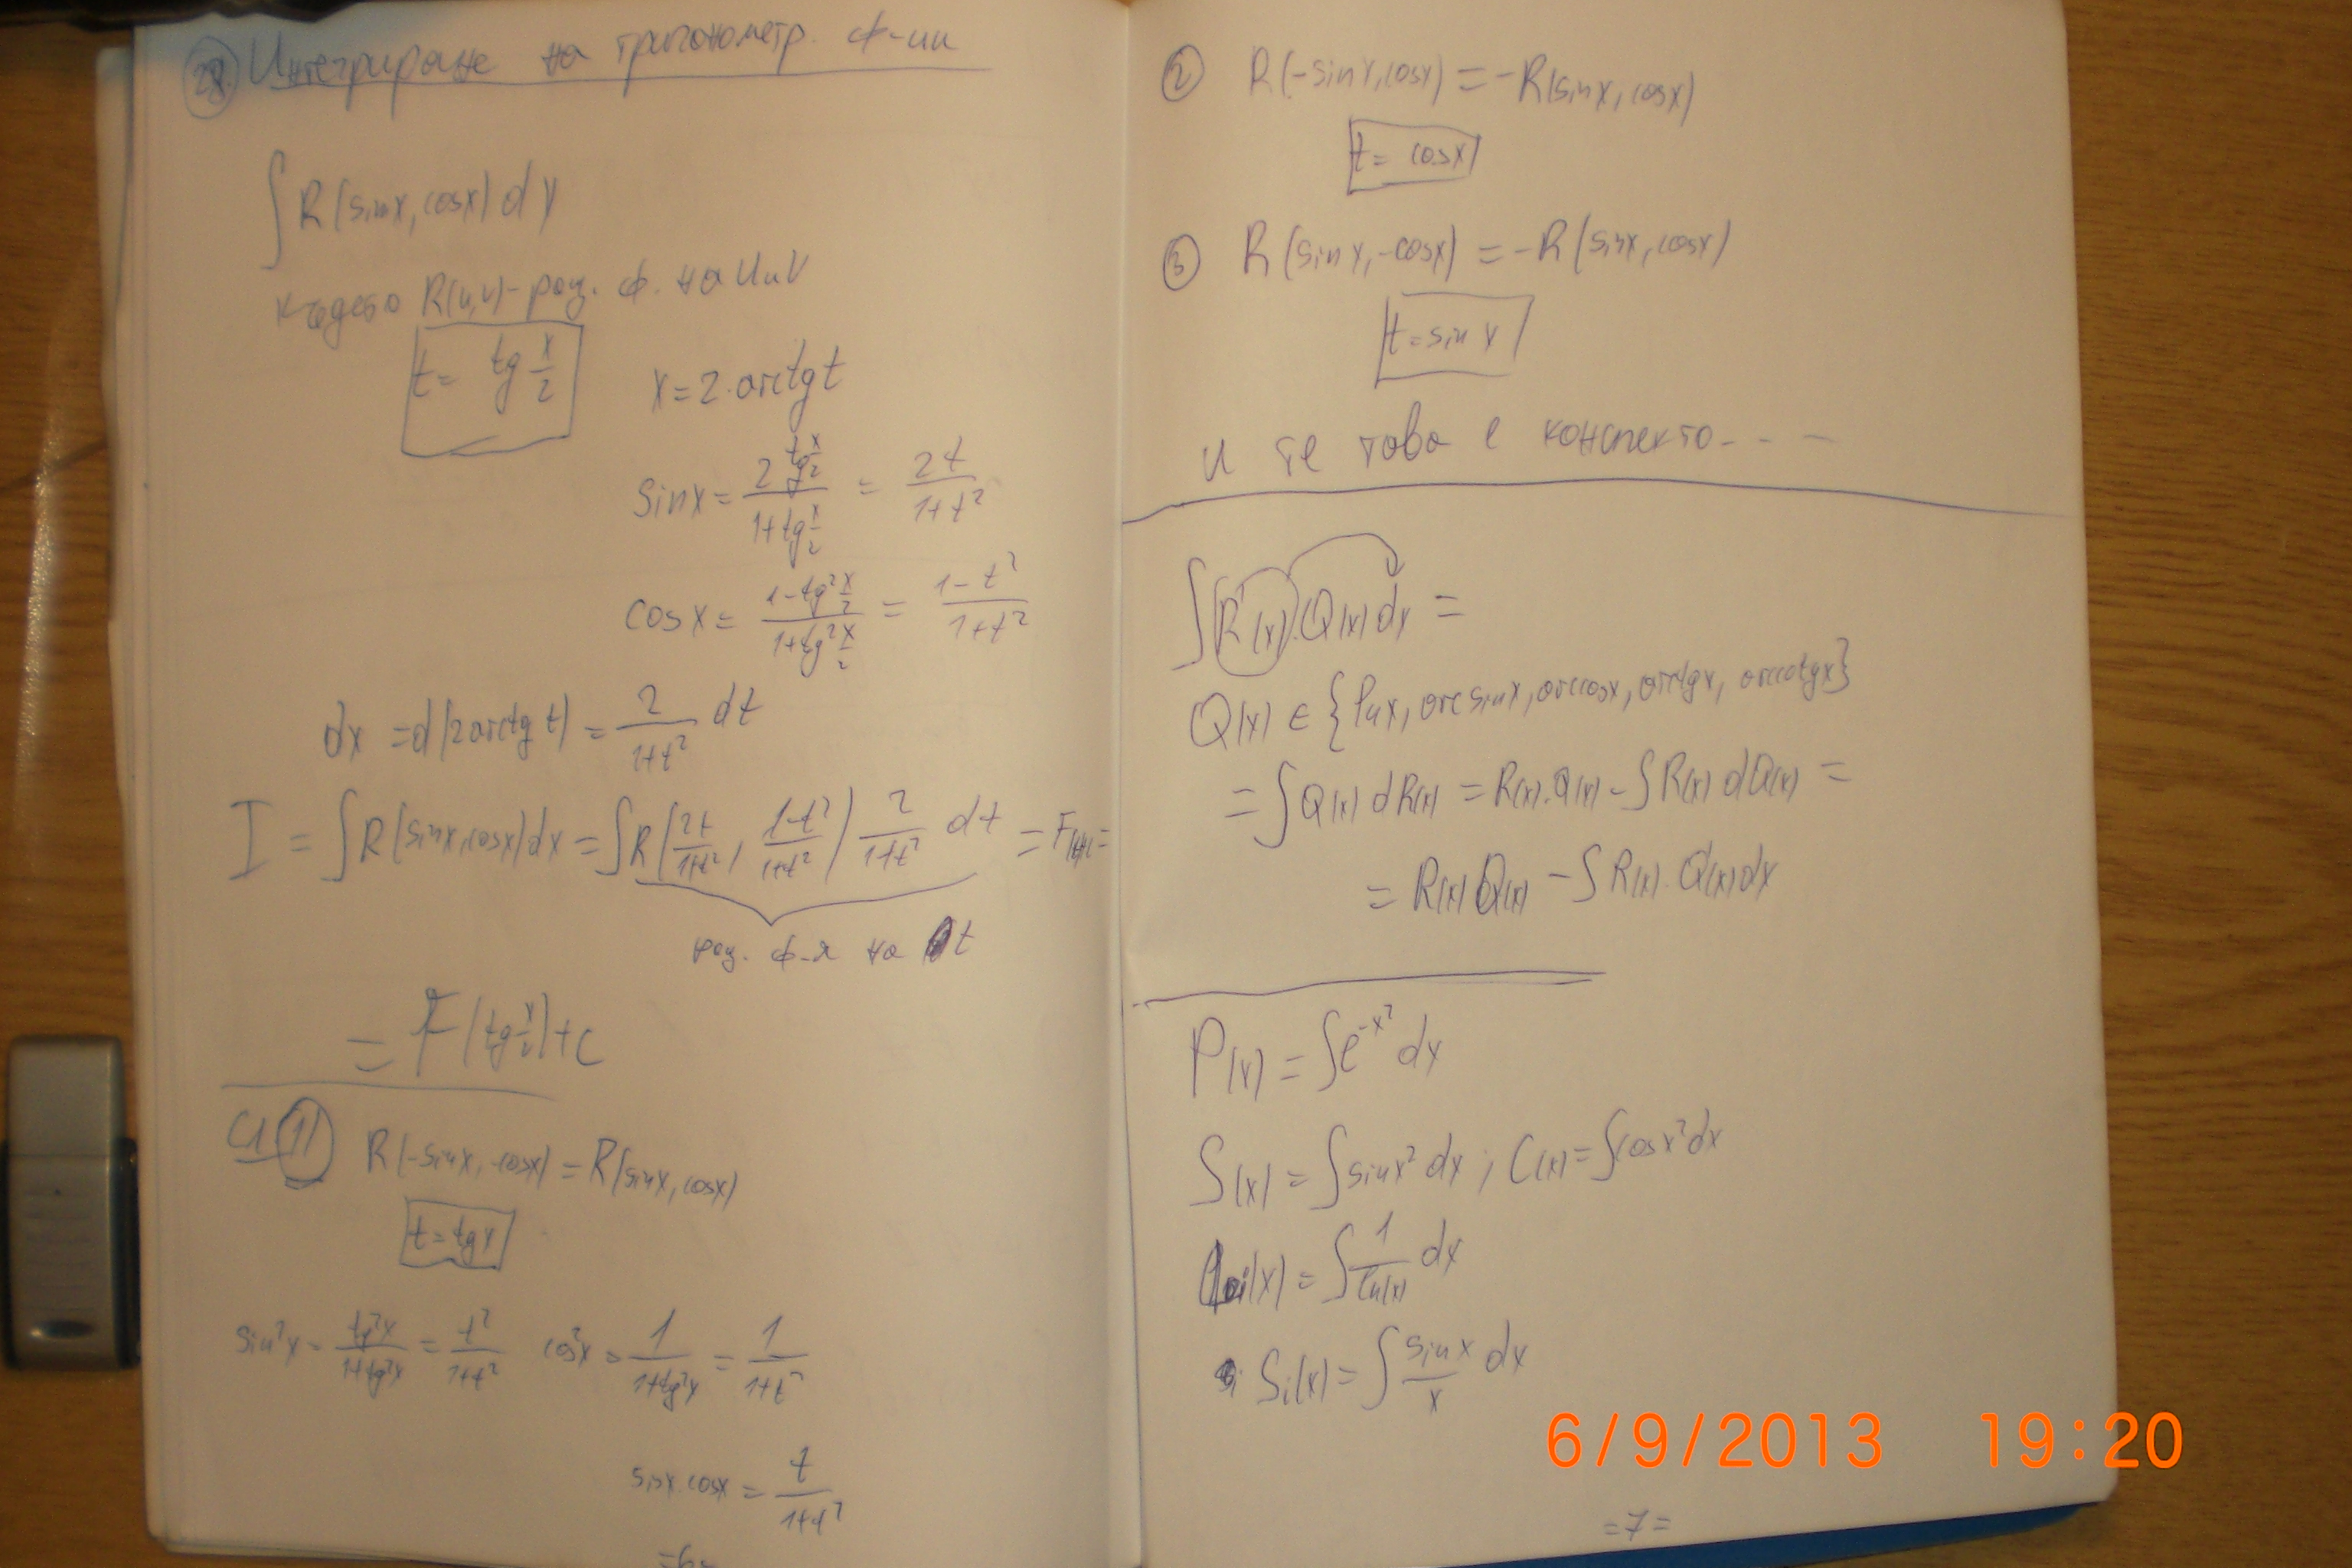 28. Интегриране на тригонометр. ф-ии
∫R(sinx, cosx)dx
където R(u,v)- рац. ф. на u и v
t = tg x/2
x = 2.arctg t
sinx = (2 tg x/2)/(1+tg x/2) = 2t/(1+t²)
cosx = (1-tg² x/2)/(1+tg² x/2) = (1-t²)/(1+t²)
dx = d(2arctg t) = 2/(1+t²) dt
I = ∫R(sinx, cosx)dx = ∫R(2t/(1+t²), (1-t²)/(1+t²)) 2/(1+t²) dt =
рац. ф-я на t
= F(tg x/2)+c
1)
R(-sinx, -cosx) = R(sinx, cosx)
t = tgx
sin²x = tg²x/(1+tg²x) = t²/(1+t²) cos²x = 1/(1+tg²x) = 1/(1+t²)
sinx.cosx = t/(1+t²)
=6=
2) R(-sinx, cosx) = -R(sinx, cosx)
t = cosx
3) R(sinx, -cosx) = -R(sinx, cosx)
t = sinx
и те това е конспекто - - -
∫R'(x).Q(x)dx =
Q(x) ∈ {lnx, arcsinx, arccosx, arctgx, arccotgx}
= ∫Q(x)dR(x) = R(x).Q(x) - ∫R(x)dQ(x) =
= R(x)Q(x) - ∫R(x).Q'(x)dx
P(x) = ∫e^-x² dx
S(x) = ∫sinx² dx ; C(x) = ∫cosx² dx
Li(x) = ∫1/ln(x) dx
Si(x) = ∫sinx/x dx
6/9/2013 19:20
=7=